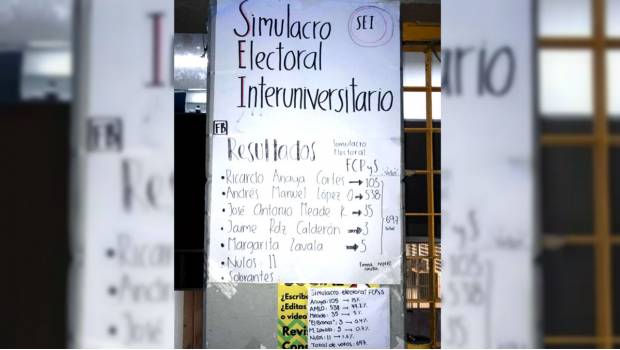 Simulacro
Electoral
Interuniversitario
SEI
FB
Resultados
Simulacro
Electoral
FCPyS
• Ricardo Anaya Cortés → 105
• Andrés Manuel López O → 538
• José Antonio Meade K → 35
• Jaime Rdz Calderón → 3
• Margarita Zavala → 5
• Nulos 11
• Sobrantes
697
total
¿Escrib
¿Editas
o video
Revis
Cons
Simulacro electoral FCPyS
Anaya: 105 → 15%
AMLO: 538 → 77.2%
Meade: 35 → 5%
"El Bronco": 3 → 0.4%
M. Zavala: 5 → 0.7%
Nulos: 11 → 1.6%
Total de votos: 697